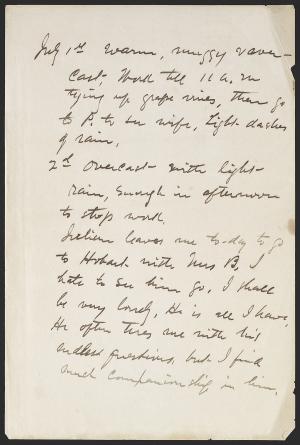 July 1st Warm, muggy & over-
cast, Work till 11 a. m
tying up grape vines, then go
to P. to see wife, Light dashes
of rain,
2d Overcast with light
rain, enough in afternoon
to stop work.
Julian leaves me to-day to go
to Hobart with Mrs B, I
hate to see him go, I shall
be very lonely, He is all I have,
He often tires me with his
endless questions, but I find
much companionship in him,